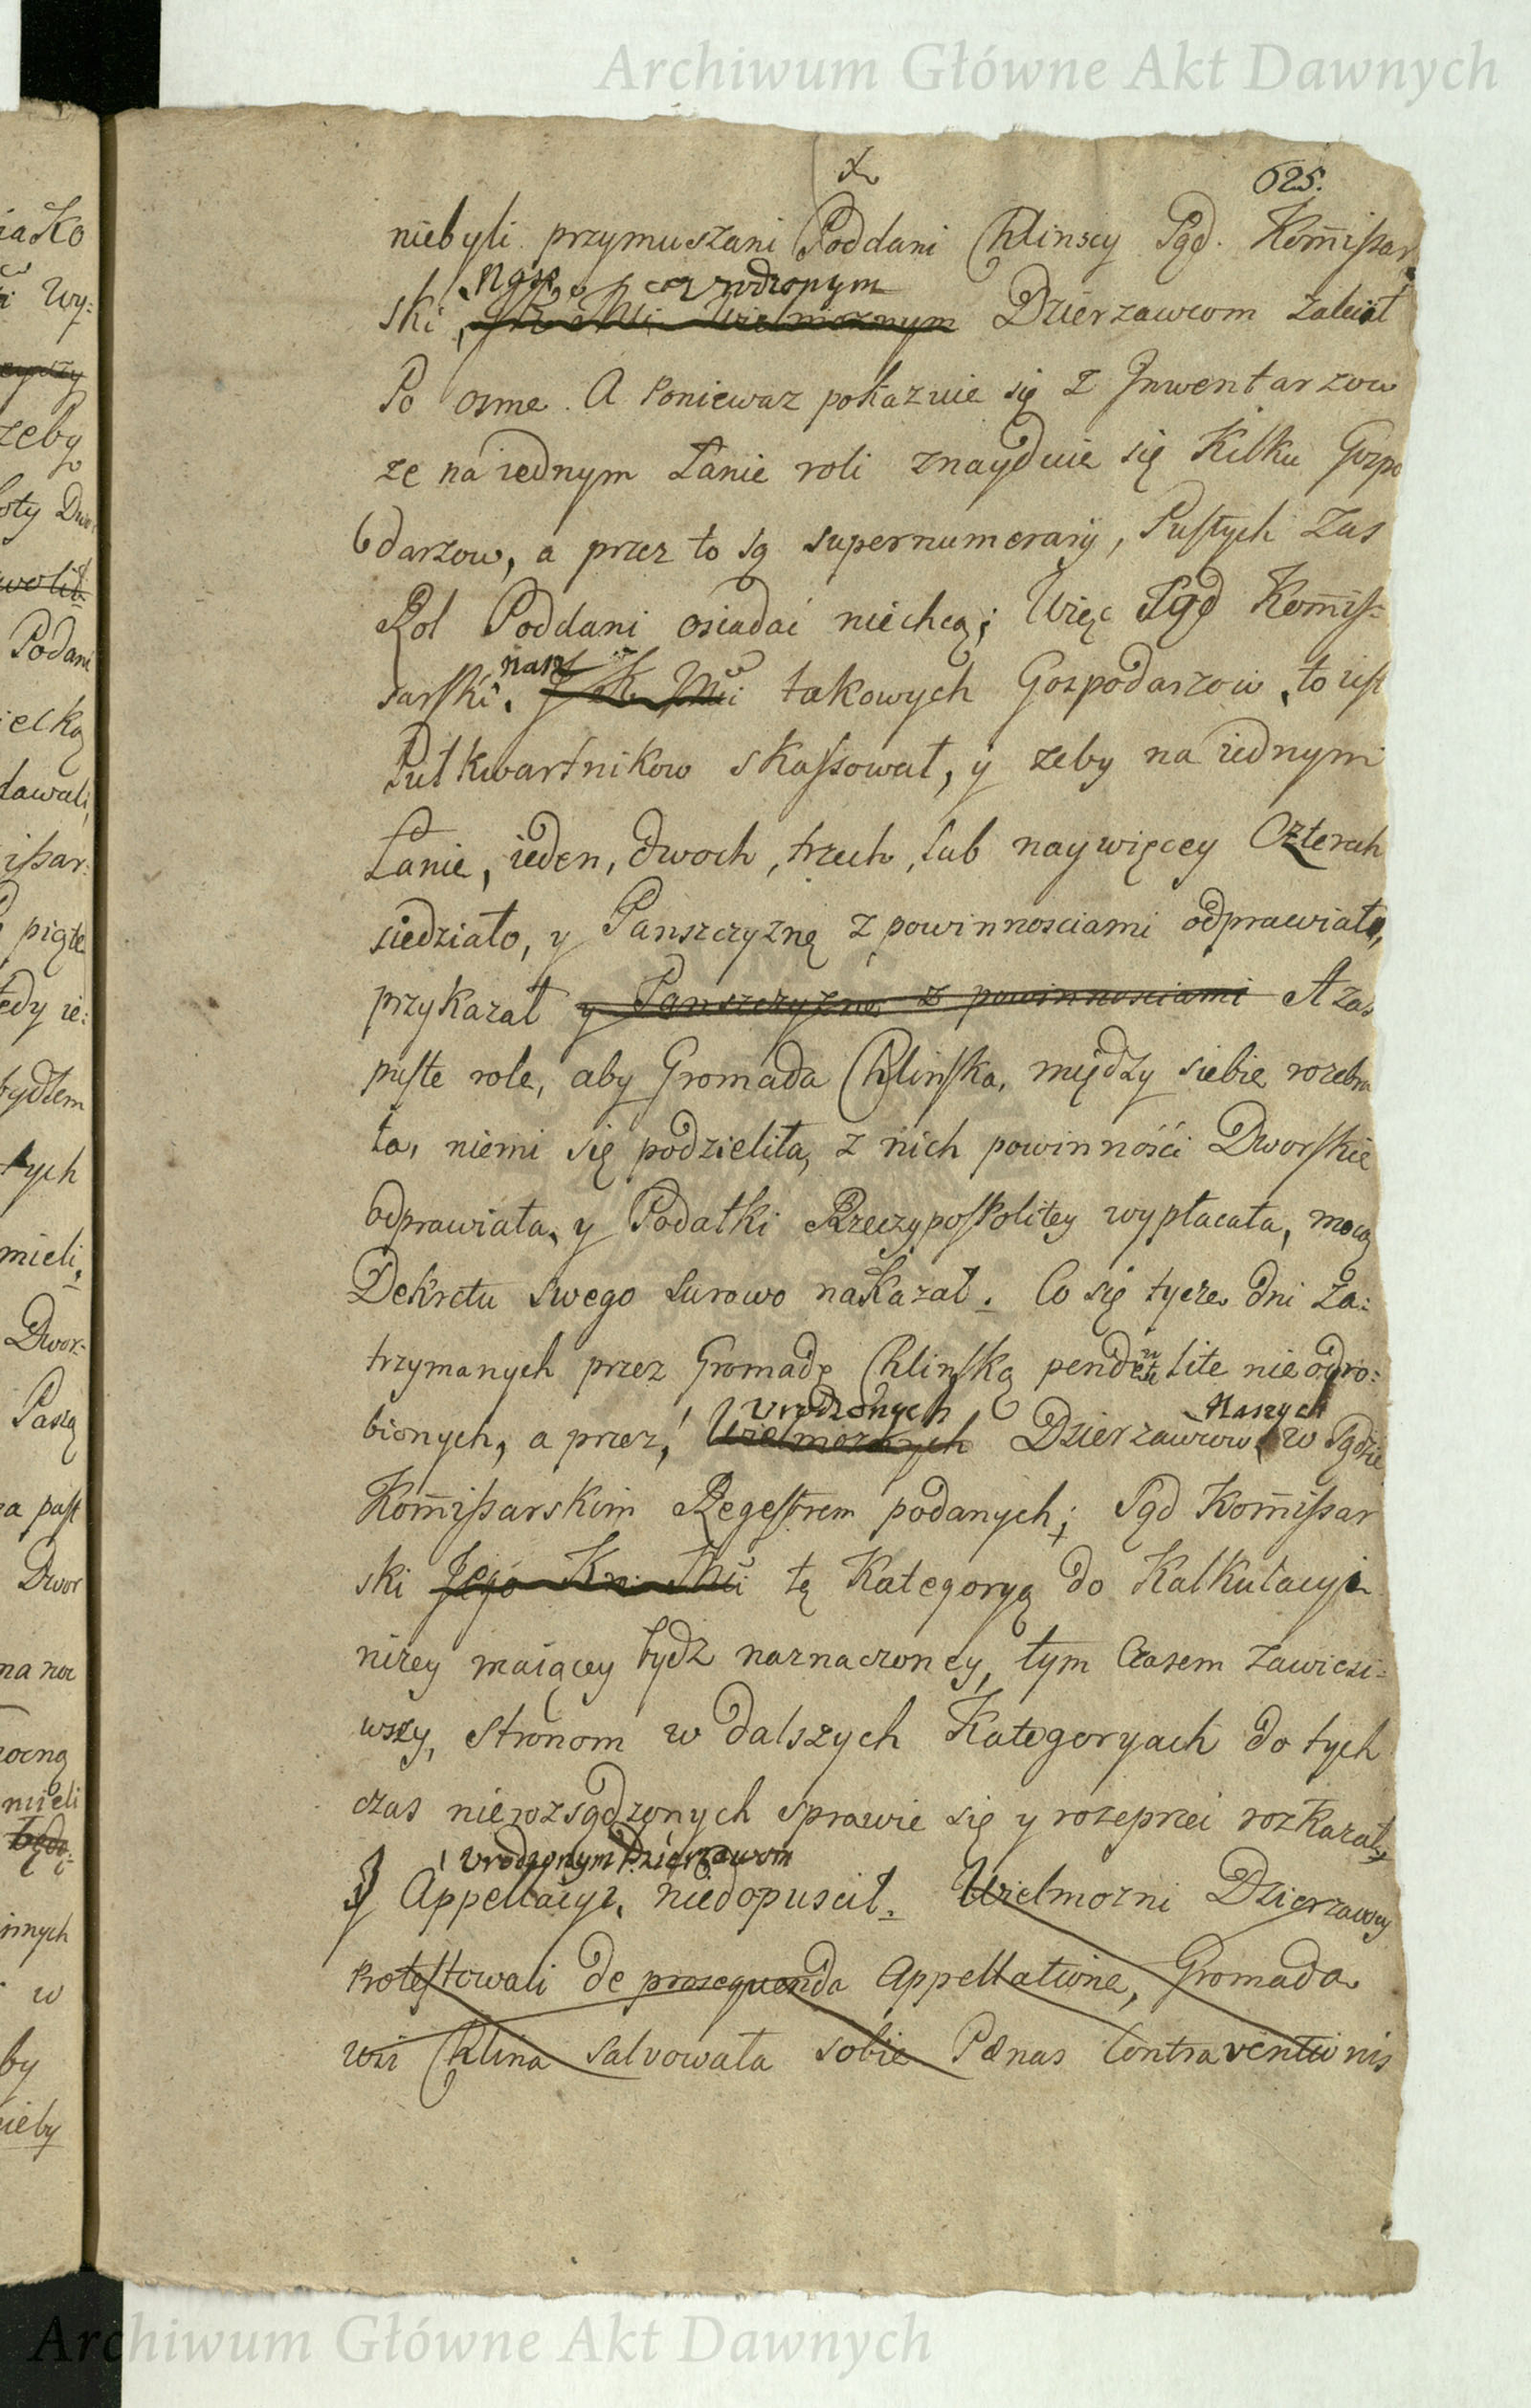 Archiwum Główne Akt Dawnych
625.
niebyli przymuszani Poddani Chlinscy Sąd. Kom̄issar
Nasz urodzonym
ski, JK Mci Wielmoznym Dzierzawcom zalecił
Po osme. A Poniewaz pokazuie się z Jnwentarzow
ze na iednym Łanie roli znayduie się Kilku Gospo
darzow, a przez to są supernumerarij, Pustych zas
Rol Poddani osiadać niechcą; Więc Sąd Kom̄is=
nasz
sarski. JK Mci takowych Gospodarzow, to iest
Pułkwartnikow skassował, y zeby na iednym
Łanie, ieden, dwoch, trzech, lub naywięcey Czterech
siedziało, y Panszczyznę z powinnosciami odprawiało,
przykazał y Panszczyznę z powinnosciami A zas
puste role, aby Gromada Chlinska, między siebie rozebra
ła, niemi się podzieliła, z nich powinności Dworskie
odprawiała, y Podatki Rzeczypospolitey wypłacała, mocą
Dekretu swego surowo nakazał. Co się tycze dni za:
trzymanych przez Gromadę Chlinską pendente lite nie odro:
urodzonych Naszych
bionych, a przez, Wielmoznych Dzierzawcow w Sądzie
Kom̄issarskim Regestrem podanych; Sąd Kom̄issar
ski Jego Kr: Mci tę Kategoryą do Kalkulacyi
nizey maiącey bydz naznaczoney, tym Czasem zawiesi=
wszy, stronom w dalszych Kategoryach do tych
czas nierozsądzonych sprawić się y rozeprzeć rozkazał,
urodzonym Dzierzawcom
y Appellacyi, niedopuscił. Wielmozni Dzierzawcy
Protestowali de prosequenda Appellatione, Gromada
wsi Chlina salvowała sobie Pænas Contraventionis
Archiwum Główne Akt Dawnych
iako
Wy:
zeby
Podani
ielką
dawali,
issar:
piąte
tedy ie:
bydłem
tych
mieli,
Dwor:
Paszą
Dwor
mocną
mieli
innych
w
by